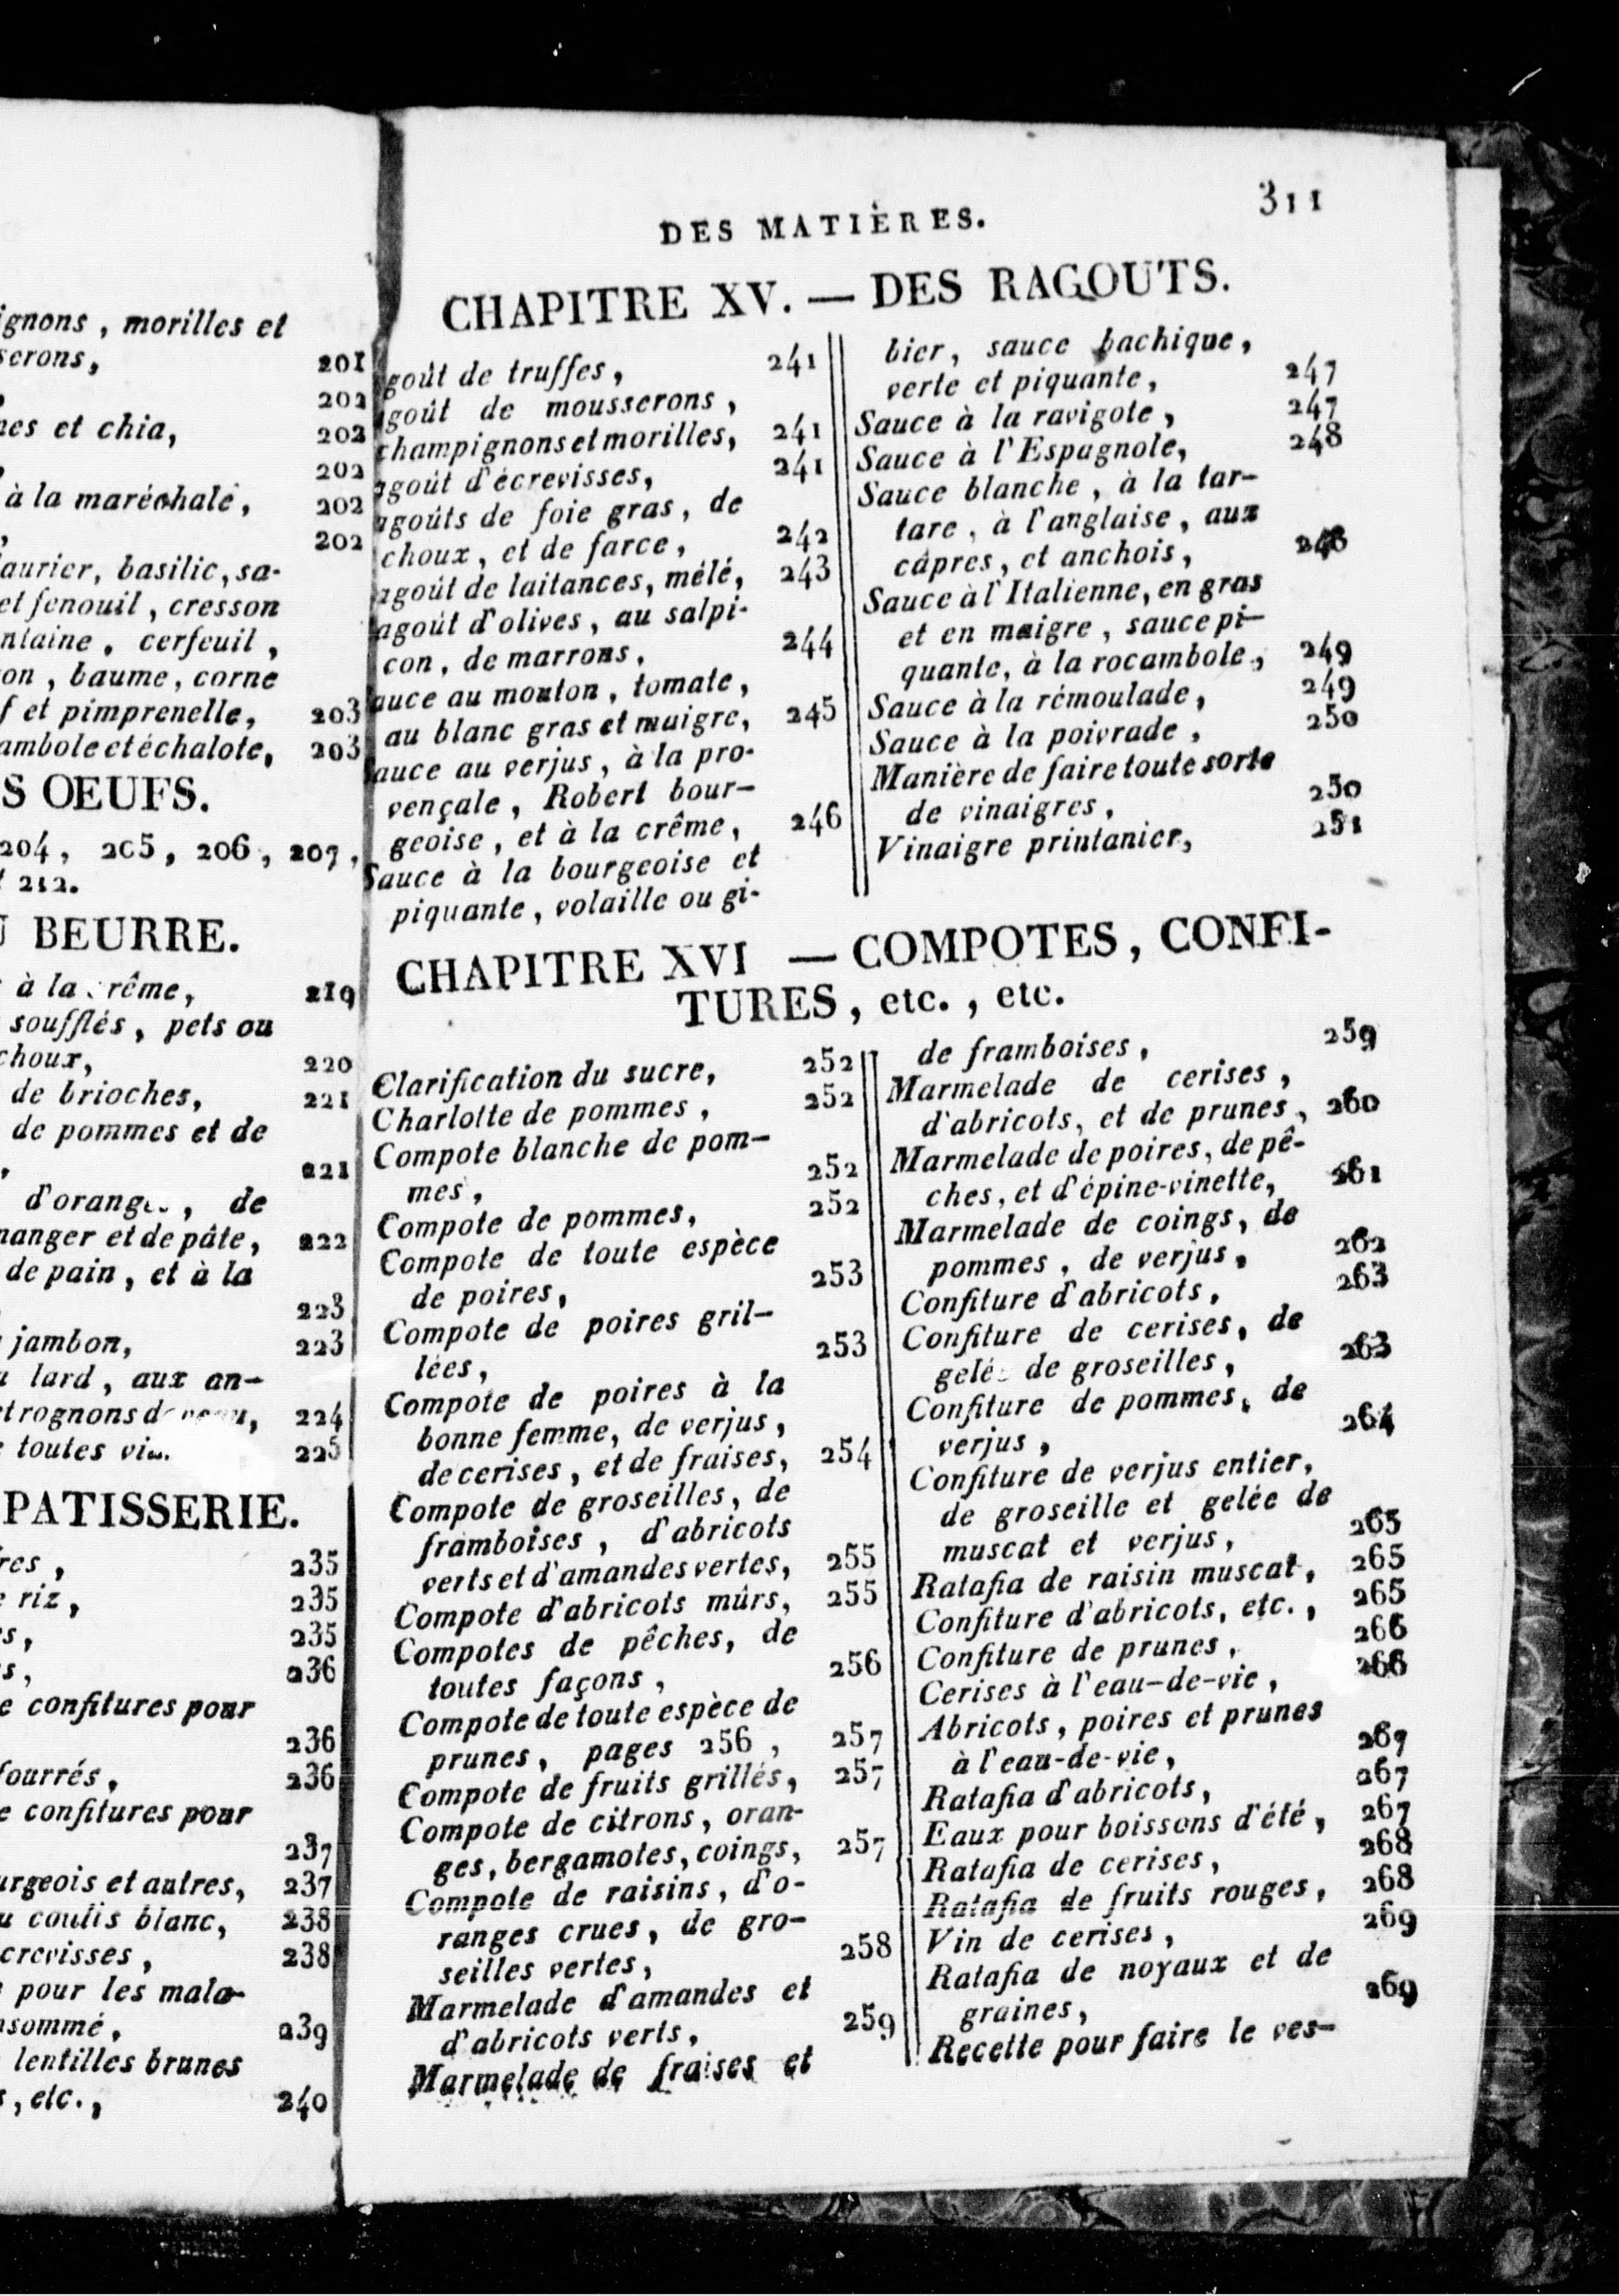 ignons, morilles et
serons, 201
202
nes et chia, 202
202
à la maréchale, 202
202
laurier, basilic, sa-
et fenouil, cresson
ntaine, cerfeuil,
on, baume, corne
f et pimprenelle, 203
ambole et échalote, 203
S OEUFS.
204, 205, 206, 207,
212.
BEURRE.
à la rême, 219
soufflés, pets ou
choux, 220
de brioches, 221
de pommes et de
221
d'orang , de
manger et de pâte, 222
de pain, et à la
223
jambon, 223
lard, aux an-
et rognons de veau, 224
toutes via 225
PATISSERIE.
res, 235
riz, 235
s, 235
s, 236
e confitures pour
236
fourrés, 236
e confitures pour
237
urgeois et autres, 237
u coulis blanc, 238
crevisses, 238
pour les mala-
nsommé, 239
lentilles brunes
s, etc., 240
DES MATIÈRES. 311
CHAPITRE XV. — DES RAGOUTS.
goût de truffes, 241
goût de mousserons,
champignons et morilles, 241
agoût d'écrevisses, 241
agoûts de foie gras, de
choux, et de farce, 242
agoût de laitances, mêlé, 243
agoût d'olives, au salpi-
con, de marrons, 244
auce au mouton, tomate,
au blanc gras et maigre, 245
auce au verjus, à la pro-
vençale, Robert bour-
geoise, et à la crême, 246
Sauce à la bourgeoise et
piquante, volaille ou gi-
bier, sauce bachique,
verte et piquante, 247
Sauce à la ravigote, 247
Sauce à l'Espagnole, 248
Sauce blanche, à la tar-
tare, à l'anglaise, aux
câpres, et anchois, 248
Sauce à l'Italienne, en gras
et en maigre, sauce pi-
quante, à la rocambole, 249
Sauce à la rémoulade, 249
Sauce à la poivrade, 250
Manière de faire toute sorte
de vinaigres, 250
Vinaigre printanier, 251
CHAPITRE XVI — COMPOTES, CONFI-
TURES, etc., etc.
Clarification du sucre, 252
Charlotte de pommes, 252
Compote blanche de pom-
mes, 252
Compote de pommes, 252
Compote de toute espèce
de poires, 253
Compote de poires gril-
lées, 253
Compote de poires à la
bonne femme, de verjus,
de cerises, et de fraises, 254
Compote de groseilles, de
framboises, d'abricots
verts et d'amandes vertes, 255
Compote d'abricots mûrs, 255
Compotes de pêches, de
toutes façons, 256
Compote de toute espèce de
prunes, pages 256, 257
Compote de fruits grillés, 257
Compote de citrons, oran-
ges, bergamotes, coings, 257
Compote de raisins, d'o-
ranges crues, de gro-
seilles vertes, 258
Marmelade d'amandes et
d'abricots verts, 259
Marmelade de fraises et
de framboises, 259
Marmelade de cerises,
d'abricots, et de prunes, 260
Marmelade de poires, de pê-
ches, et d'épine-vinette, 261
Marmelade de coings, de
pommes, de verjus, 262
Confiture d'abricots, 263
Confiture de cerises, de
gelée de groseilles, 263
Confiture de pommes, de
verjus, 264
Confiture de verjus entier,
de groseille et gelée de
muscat et verjus, 265
Ratafia de raisin muscat, 265
Confiture d'abricots, etc., 265
Confiture de prunes, 266
Cerises à l'eau-de-vie, 266
Abricots, poires et prunes
à l'eau-de-vie, 267
Ratafia d'abricots, 267
Eaux pour boissons d'été, 267
Ratafia de cerises, 268
Ratafia de fruits rouges, 268
Vin de cerises, 269
Ratafia de noyaux et de
graines, 269
Recette pour faire le ves-